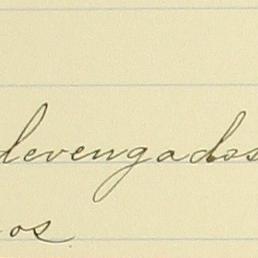 devengados
os